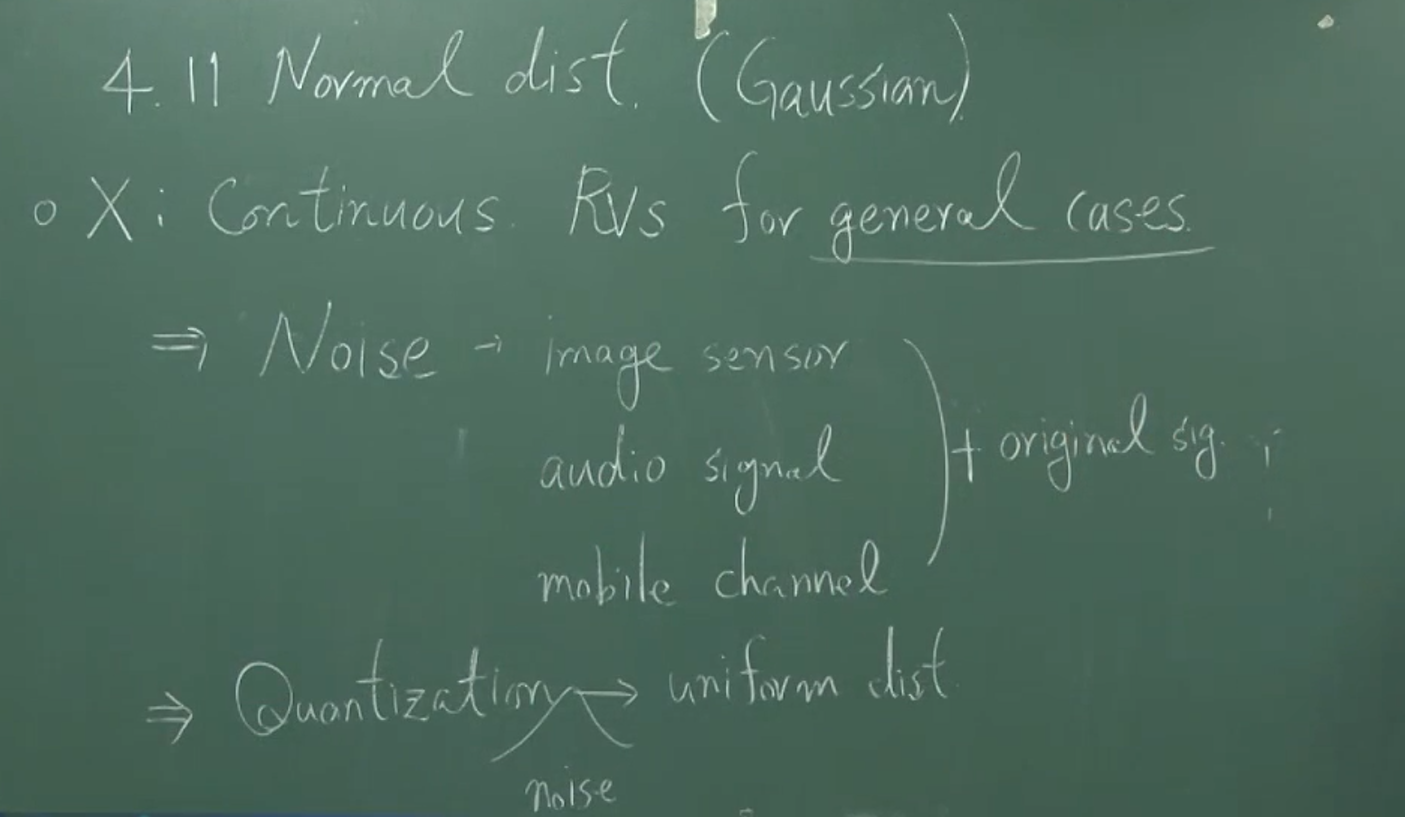 4.11 Normal dist. (Gaussian)
o X : Continuous RVs for general cases.
⇒ Noise → image sensor
audio signal
+ original sig.
mobile channel
⇒ Quantization → uniform dist
noise